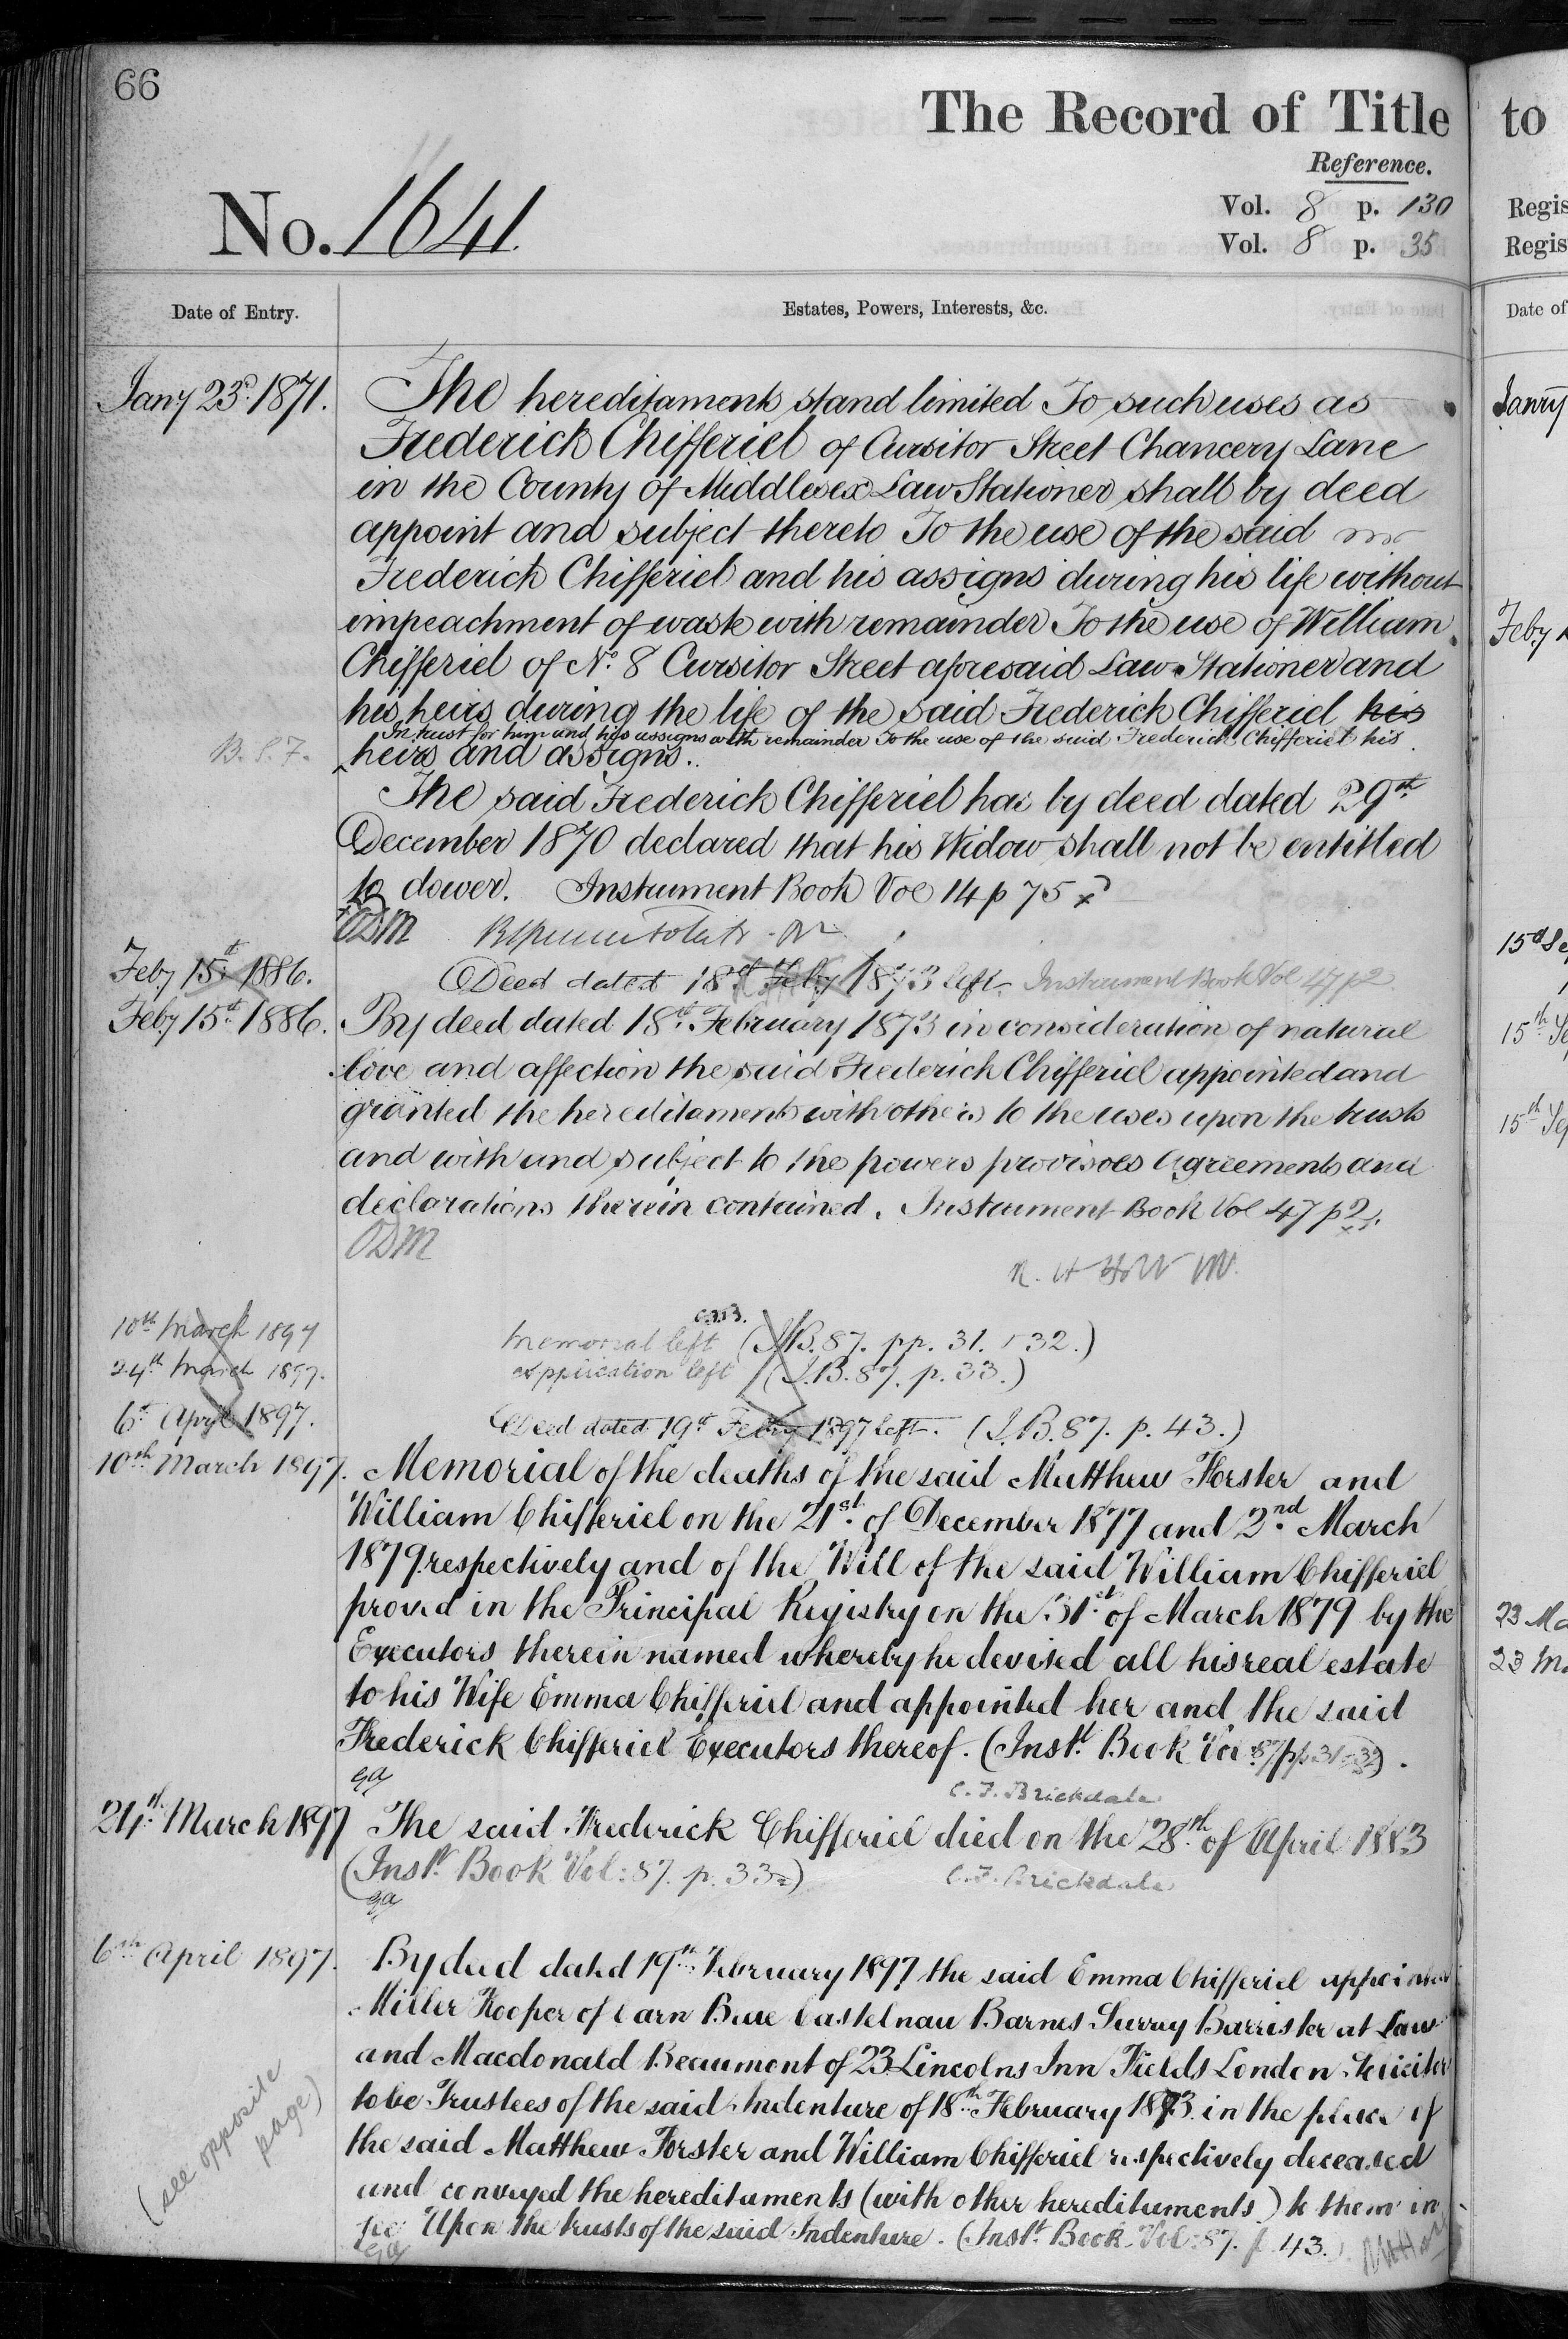 66
The Record of Title
to
Reference.
No. 1641
Vol. 8 p. 130
Vol. 8 p. 35
Regis
Regis
Date of Entry.
Estates, Powers, Interests, &c.
Date of
Jany 23d. 1871. The hereditaments stand limited To such uses as
Frederick Chifferiel of Cursitor Street Chancery Lane
in the County of Middlesex Law Stationer shall by deed
appoint and subject thereto To the use of the said
Frederick Chifferiel and his assigns during his life without
impeachment of waste with remainder To the use of William
Chifferiel of No. 8 Cursitor Street aforesaid Law Stationer and
his heirs during the life of the said Frederick Chifferiel his
In trust for him and his assigns with remainder To the use of the said Frederick Chifferiel his
B.S.F. heirs and assigns.
The said Frederick Chifferiel has by deed dated 29th
December 1870 declared that his Widow shall not be entitled
to dower. Instrument Book Vol 14 p 75
ODM
Feby 15th 1886. Deed dated 18th Feby 1873 left. Instrument Book Vol 47 p2.
Feby 15th 1886. By deed dated 18th February 1873 in consideration of natural
love and affection the said Frederick Chifferiel appointed and
granted the hereditaments with others to the uses upon the trusts
and with and subject to the powers provisoes agreements and
declarations therein contained. Instrument Book Vol 47 p 2.
ODM
10th March 1897 Memorial left (I.B. 87. pp. 31. + 32.)
24th March 1897. application left (I.B. 87. p. 33.)
6th April 1897. Deed dated 19th Feby 1897 left. (I.B. 87. p. 43.)
10th March 1897. Memorial of the deaths of the said Matthew Forster and
William Chifferiel on the 21st of December 1877 and 2nd March
1879 respectively and of the Will of the said William Chifferiel
proved in the Principal Registry on the 31st of March 1879 by the
Executors therein named whereby he devised all his real estate
to his Wife Emma Chifferiel and appointed her and the said
Frederick Chifferiel Executors thereof. (Inst. Book Vol 87 pp 31-32).
C.F. Brickdale
24th March 1897 The said Frederick Chifferiel died on the 28th of April 1883
(Inst. Book Vol: 87. p. 33)
C.F. Brickdale
6th April 1897. By deed dated 19th February 1897 the said Emma Chifferiel appointed
Miller Hooper of Carn Brae Castelnau Barnes Surrey Barrister at Law
and Macdonald Beaumont of 23 Lincolns Inn Fields London Solicitor
to be Trustees of the said Indenture of 18th February 1873 in the place of
the said Matthew Forster and William Chifferiel respectively deceased
and conveyed the hereditaments (with other hereditaments) to them in
fee Upon the trusts of the said Indenture. (Inst. Book Vol: 87. p. 43.)
(see opposite
page)
Janry
Feby
15th Se
15th Se
15th Se
23 Ma
23 Ma